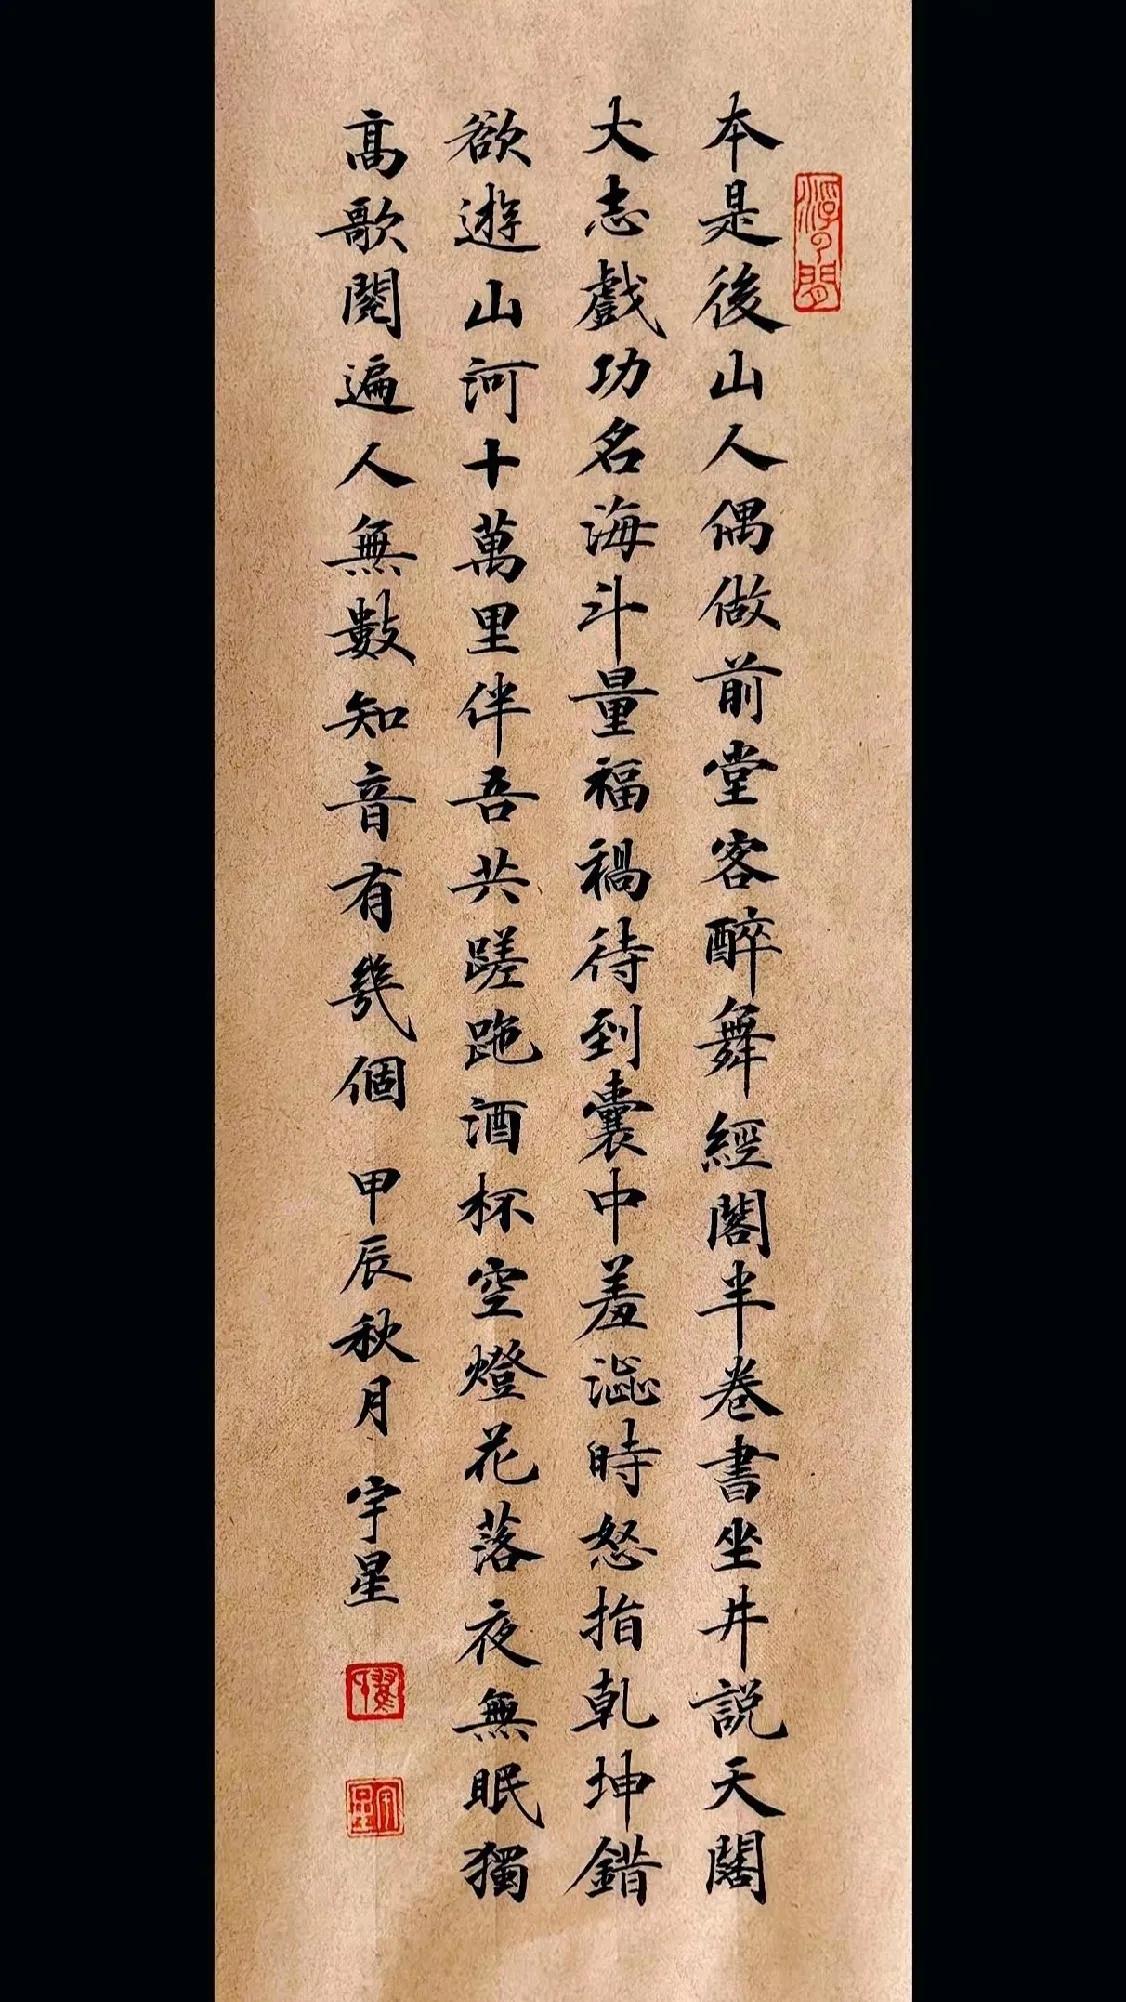 本是後山人偶做前堂客醉舞經閣半卷書坐井説天闊
大志戲功名海斗量福禍待到囊中羞澁時怒指乾坤錯
欲遊山河十萬里伴吾共蹉跎酒杯空燈花落夜無眠獨
高歌閱遍人無數知音有幾個 甲辰秋月 宇星
宇星